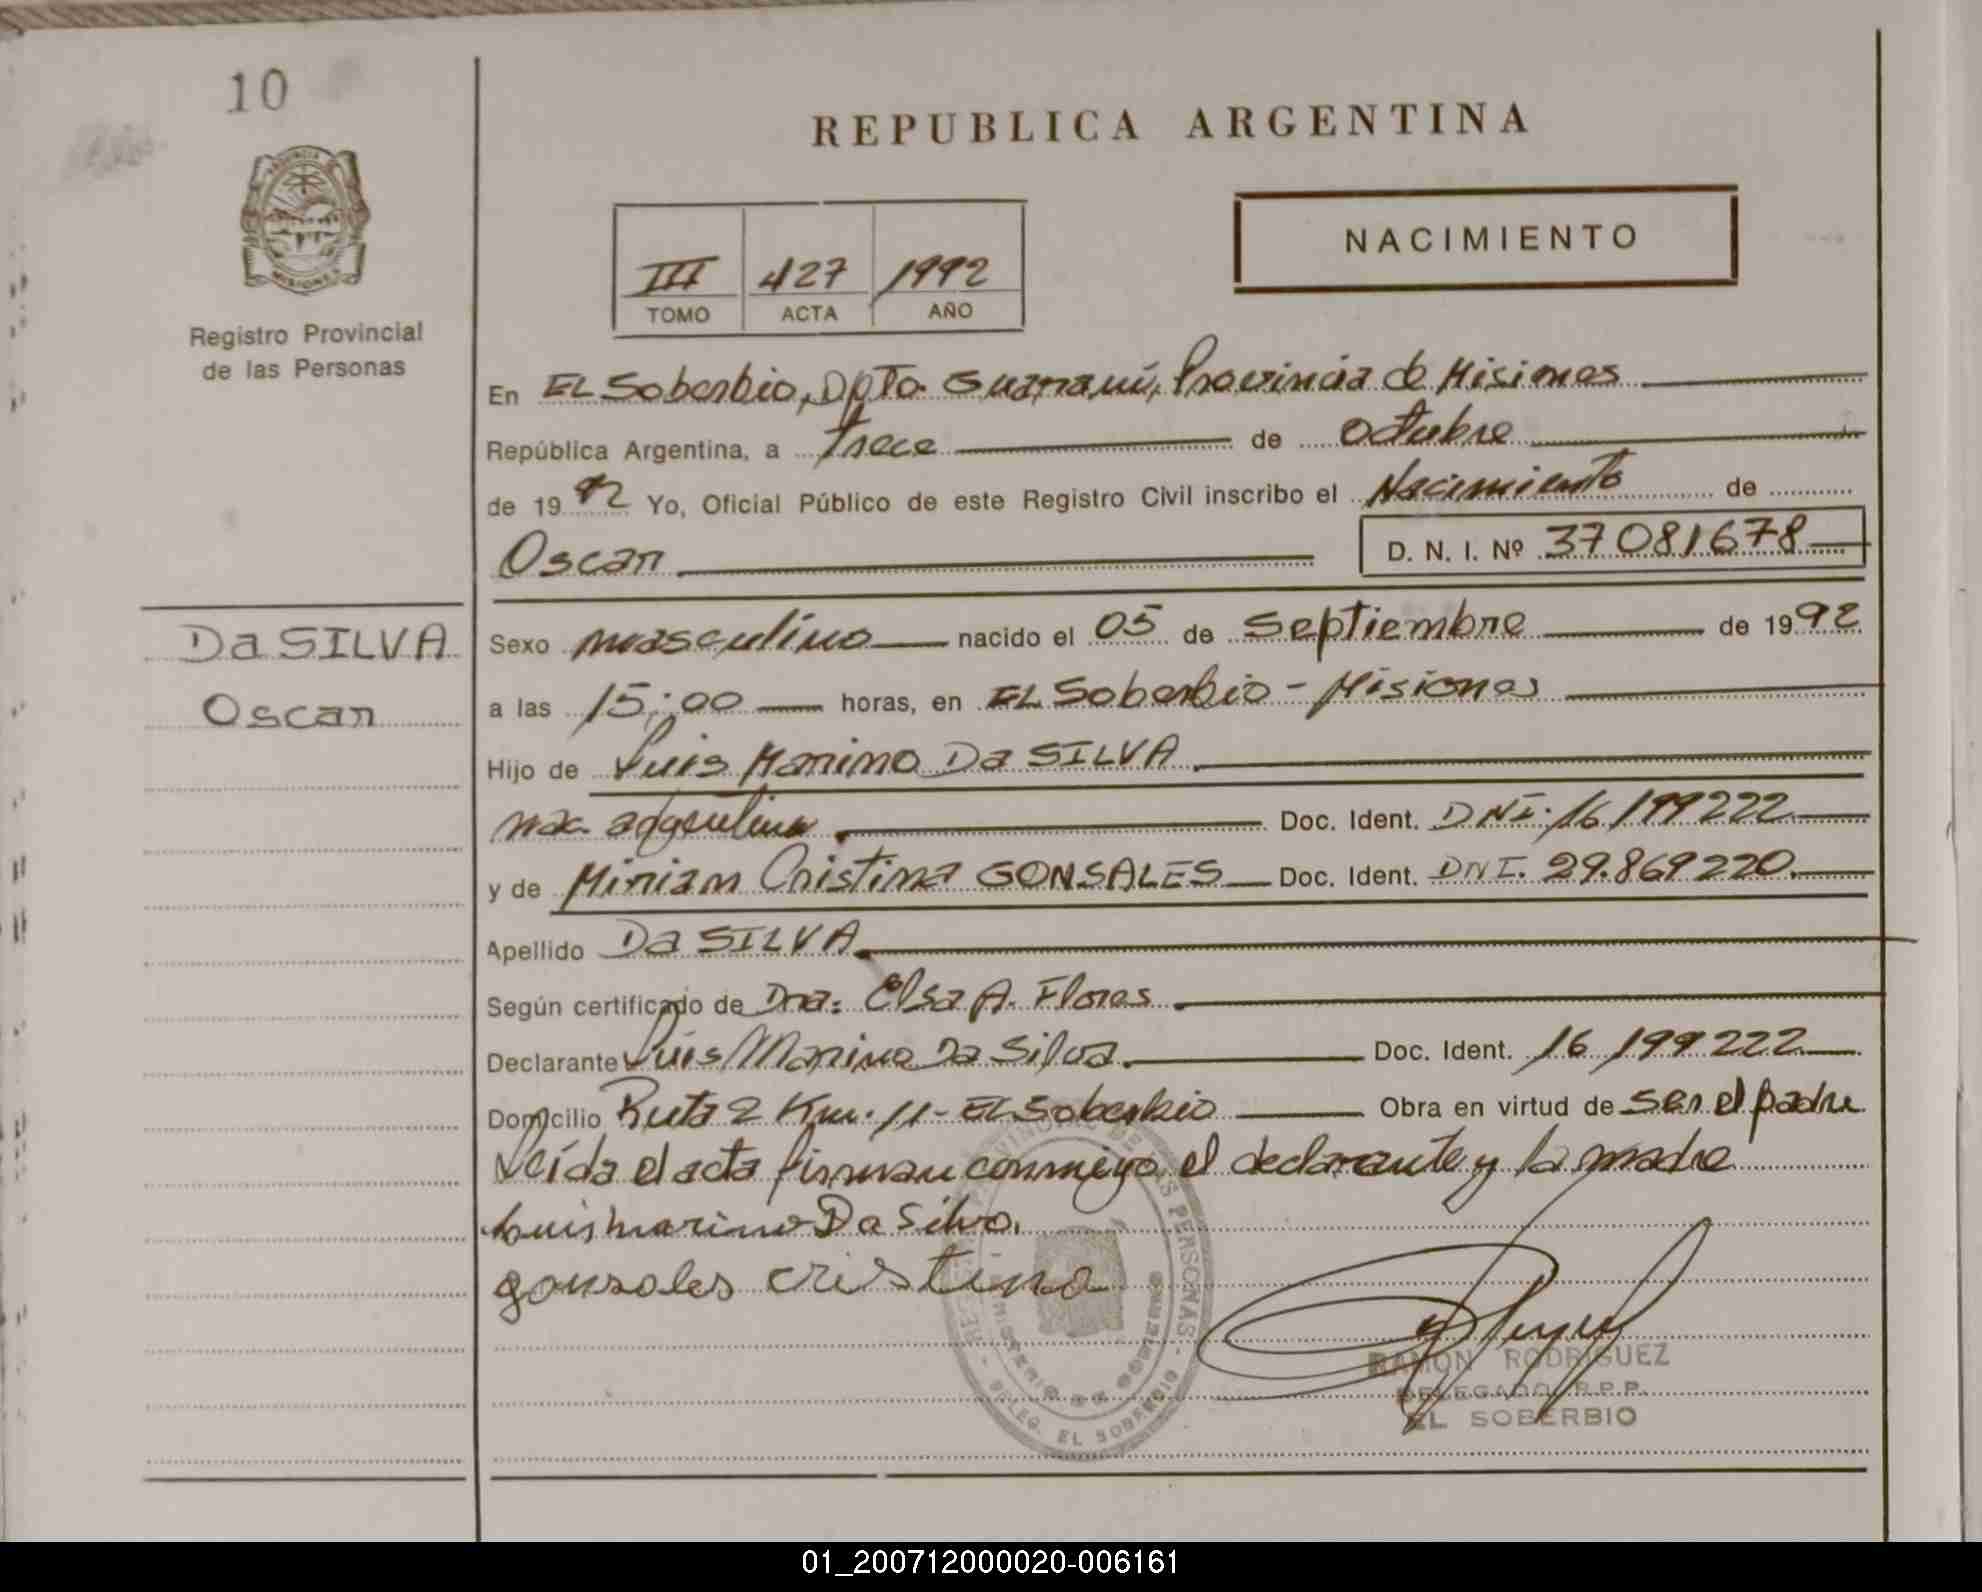 10
PROVINCIA
MISIONES
Registro Provincial
de las Personas
REPUBLICA ARGENTINA
III 427 1992
TOMO ACTA AÑO
NACIMIENTO
En EL Soberbio, Dpto. Guaraní, Provincia de Misiones
República Argentina, a Trece de Octubre
de 1992 Yo, Oficial Público de este Registro Civil inscribo el Nacimiento de
Oscar D. N. I. Nº 37081678
Da SILVA
Oscar
Sexo masculino nacido el 05 de Septiembre de 1992
a las 15:00 horas, en EL Soberbio - Misiones
Hijo de Luis Marino Da SILVA
nac. argentina Doc. Ident. DNI. 16.199222
y de Miriam Cristina GONSALES Doc. Ident. DNI. 29.869220
Apellido Da SILVA
Según certificado de Dra: Elsa A. Flores
Declarante Luis Marino Da Silva Doc. Ident. 16.199222
Domicilio Ruta 2 Km. 11 - EL Soberbio Obra en virtud de ser el padre
Leída el acta firman conmigo el declarante y la madre
Luis marino Da Silva.
gonsales cristina
DE LAS PERSONAS
MINISTERIO DE GOBIERNO
DELEG. EL SOBERBIO
RAMON RODRIGUEZ
DELEGADO R.P.P.
EL SOBERBIO
01_200712000020-006161